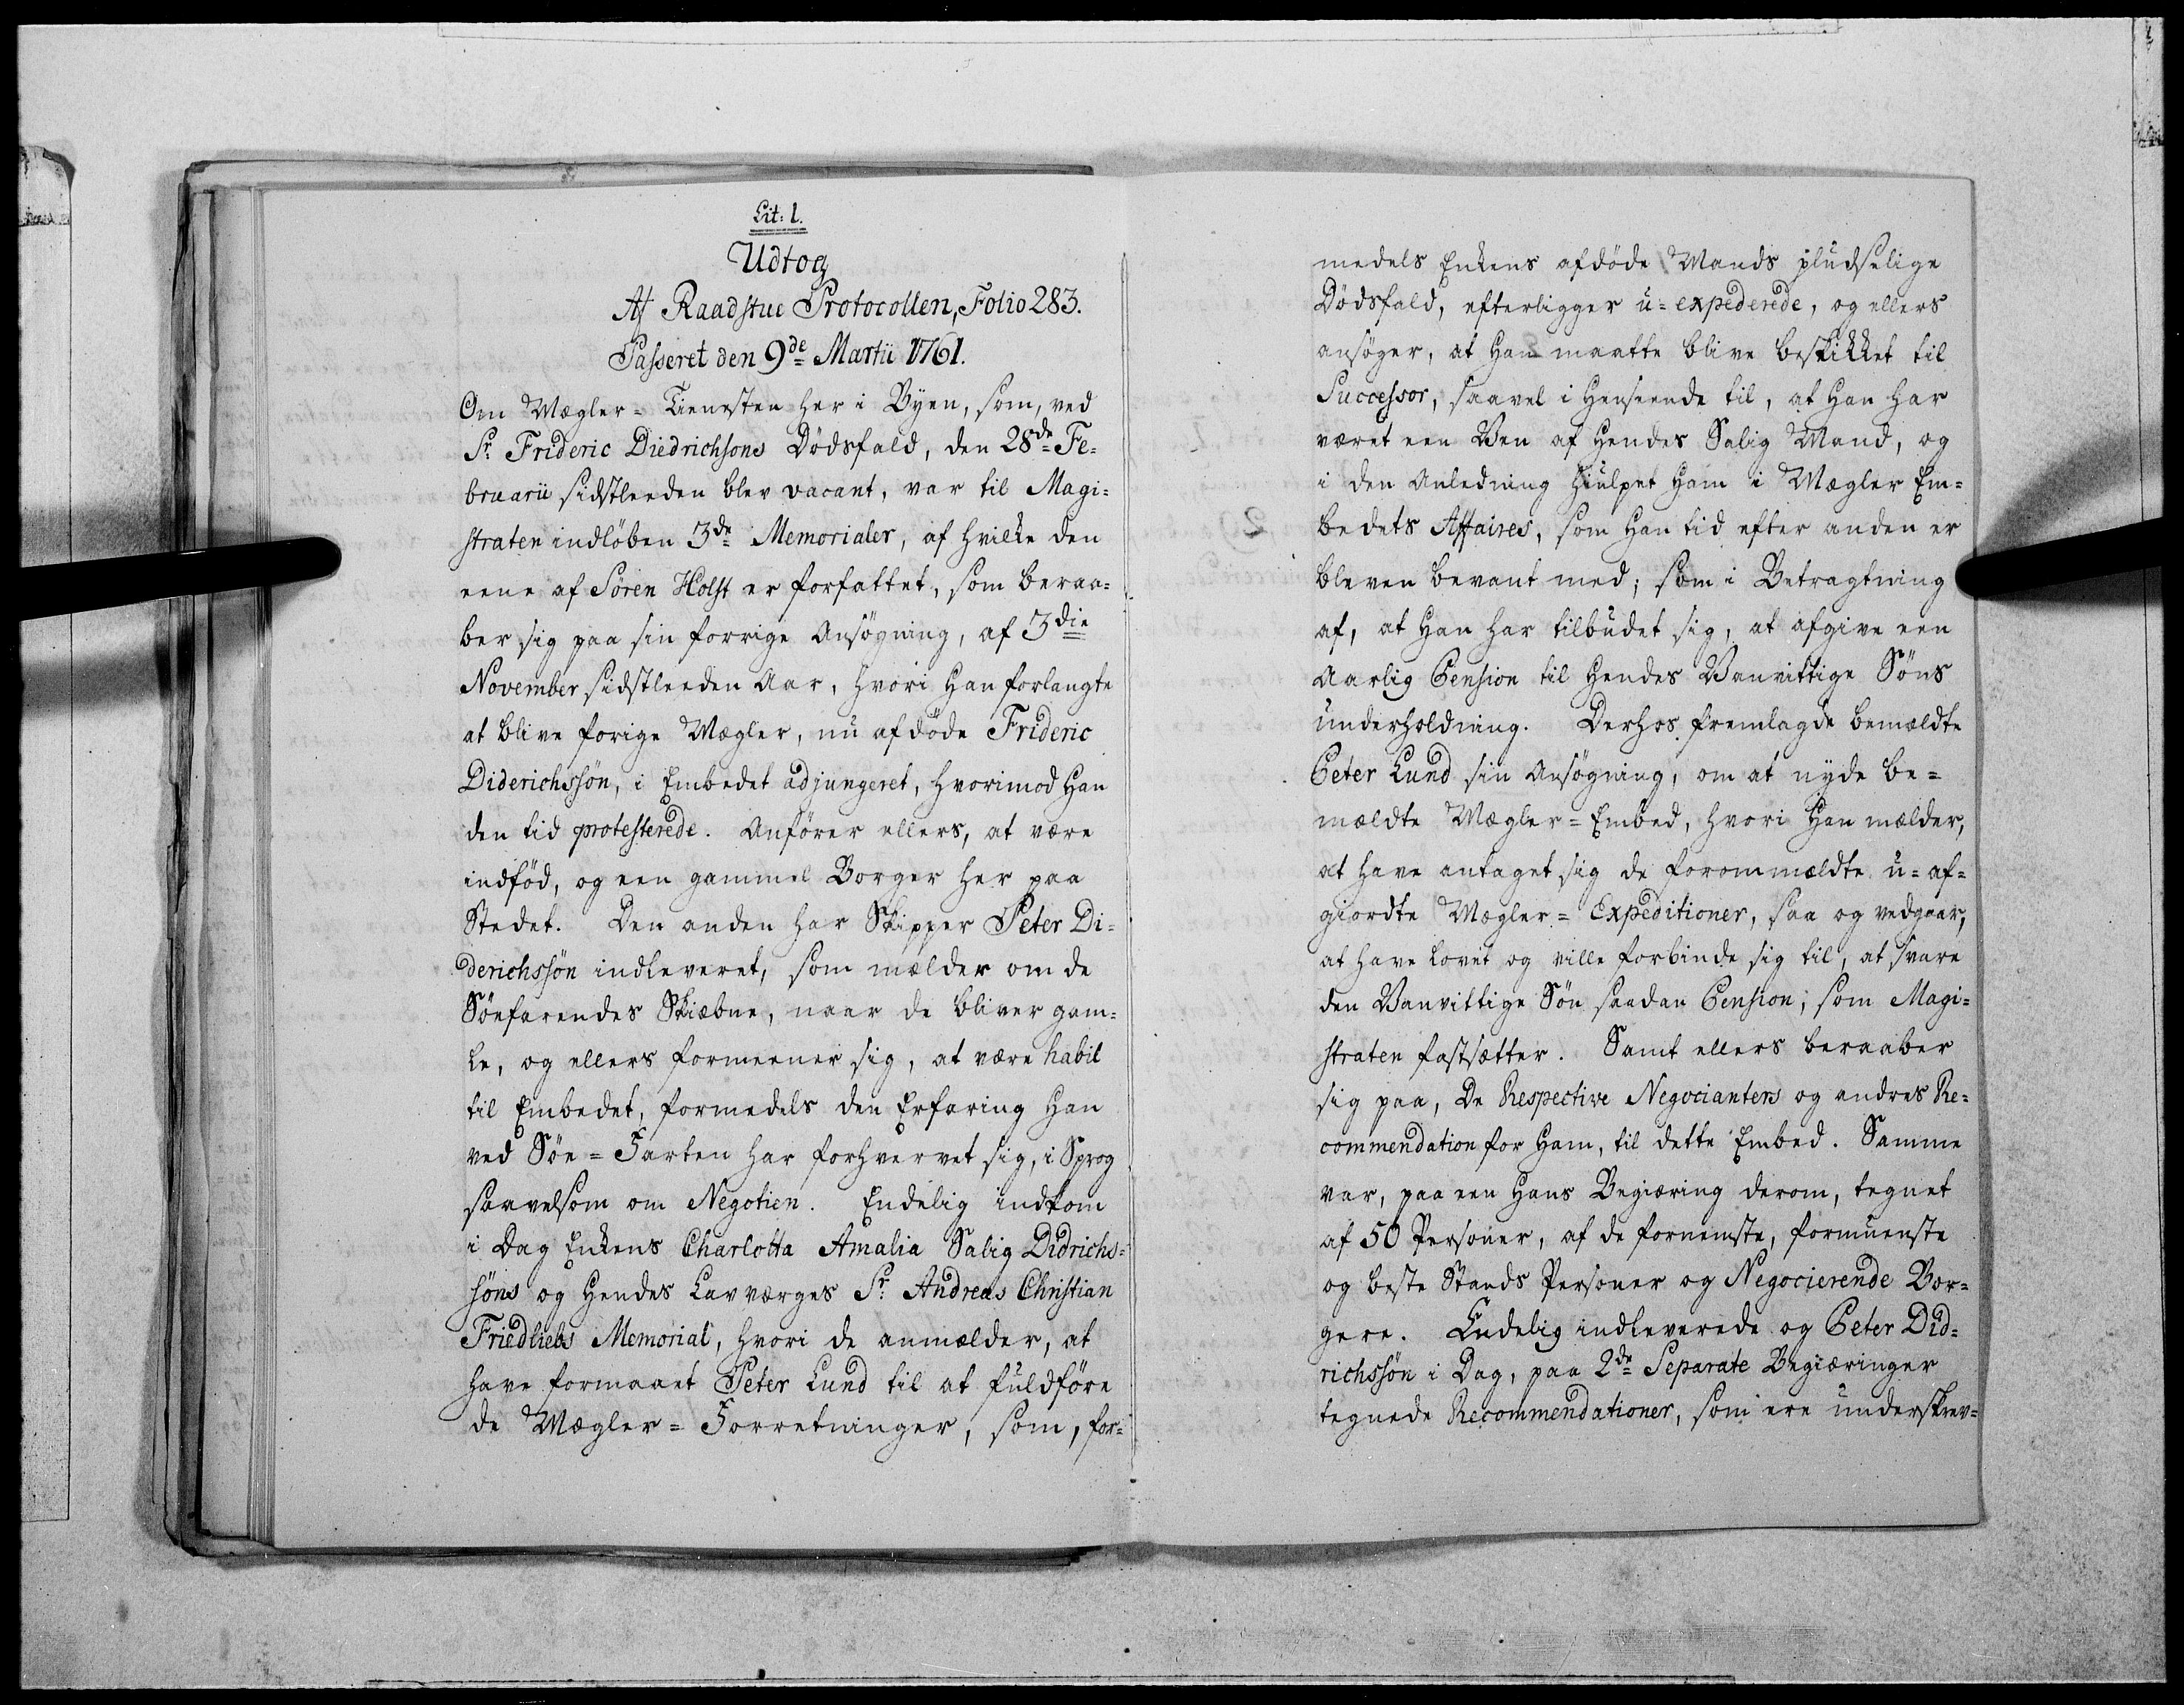 Lit: 1.
Udtog
Af Raadstue Protocollen, Folio 283.
Passeret den 9de Martii 1761.
Om Mægler=Tienesten her i Byen, som, ved
Sr. Frideric Diedrichsons Dödsfald, den 28de Fe=
bruarii sidstleeden blev vacant, var til Magi=
straten indlöben 3de Memorialer, af hvilke den
eene af Sören Holst er forfattet, som beraa=
ber sig paa sin forrige Ansögning, af 3die
November sidstleeden Aar, hvori Han forlangte
at blive forige Mægler, nu afdöde Frideric
Diderichssön, i Embedet adjungeret, hvorimod Han
den tid protesterede. Anförer ellers, at være
indföd, og een gammel Borger her paa
Stedet. Den anden har Skipper Peter Di=
derichssön indleveret, som mælder om de
Söefarendes Skiæbne, naar de bliver gam=
le, og ellers formeener sig, at være habil
til Embedet, formedels den Erfaring Han
ved Söe=Farten har forhvervet sig, i Sprog
saavelsom om Negotien. Endelig indkom
i Dag Enkens Charlotta Amalia Salig Didrichs=
söns og Hendes Lavværges Sr. Andreas Christian
Friedliebs Memorial, hvori de anmælder, at
have formaaet Peter Lund til at fuldföre
de Mægler=Forretninger, som, for=
medels Enkens afdöde Mands pludselige
Dödsfald, efterligger u=expederede, og ellers
ansöger, at Han maatte blive beskikket til
Successor, saavel i Henseende til, at Han har
været een Ven af Hendes Salig Mand, og
i den Anledning hiulpet Ham i Mægler Em=
bedets Affaires, som Han tid efter anden er
bleven bevant med; som i Betragtning
af, at Han har tilbudet sig, at afgive een
Aarlig Pension til Hendes Vanvittige Söns
underholdning. Derhos fremlagde bemældte
Peter Lund sin Ansögning, om at nyde be=
mældte Mægler=Embed, hvori Han mælder,
at have antaget sig de forommældte u=af=
giordte Mægler=Expeditioner, saa og vedgaar,
at have lovet og ville forbinde sig til, at svare
den Vanvittige Sön saadan Pension, som Magi=
straten fastsætter. Samt ellers beraaber
sig paa, De Respective Negocianters og andres Re=
commendation for Ham, til dette Embed. Samme
var, paa een Hans Begiæring derom, tegnet
af 50 Personer, af de fornemste, formuenste
og beste Stands Personer og Negocierende Bor=
gere. Endelig indleverede og Peter Did=
richssön i Dag, paa 2de Separate Begiæringer
tegnede Recommendationer, som ere underskrev=